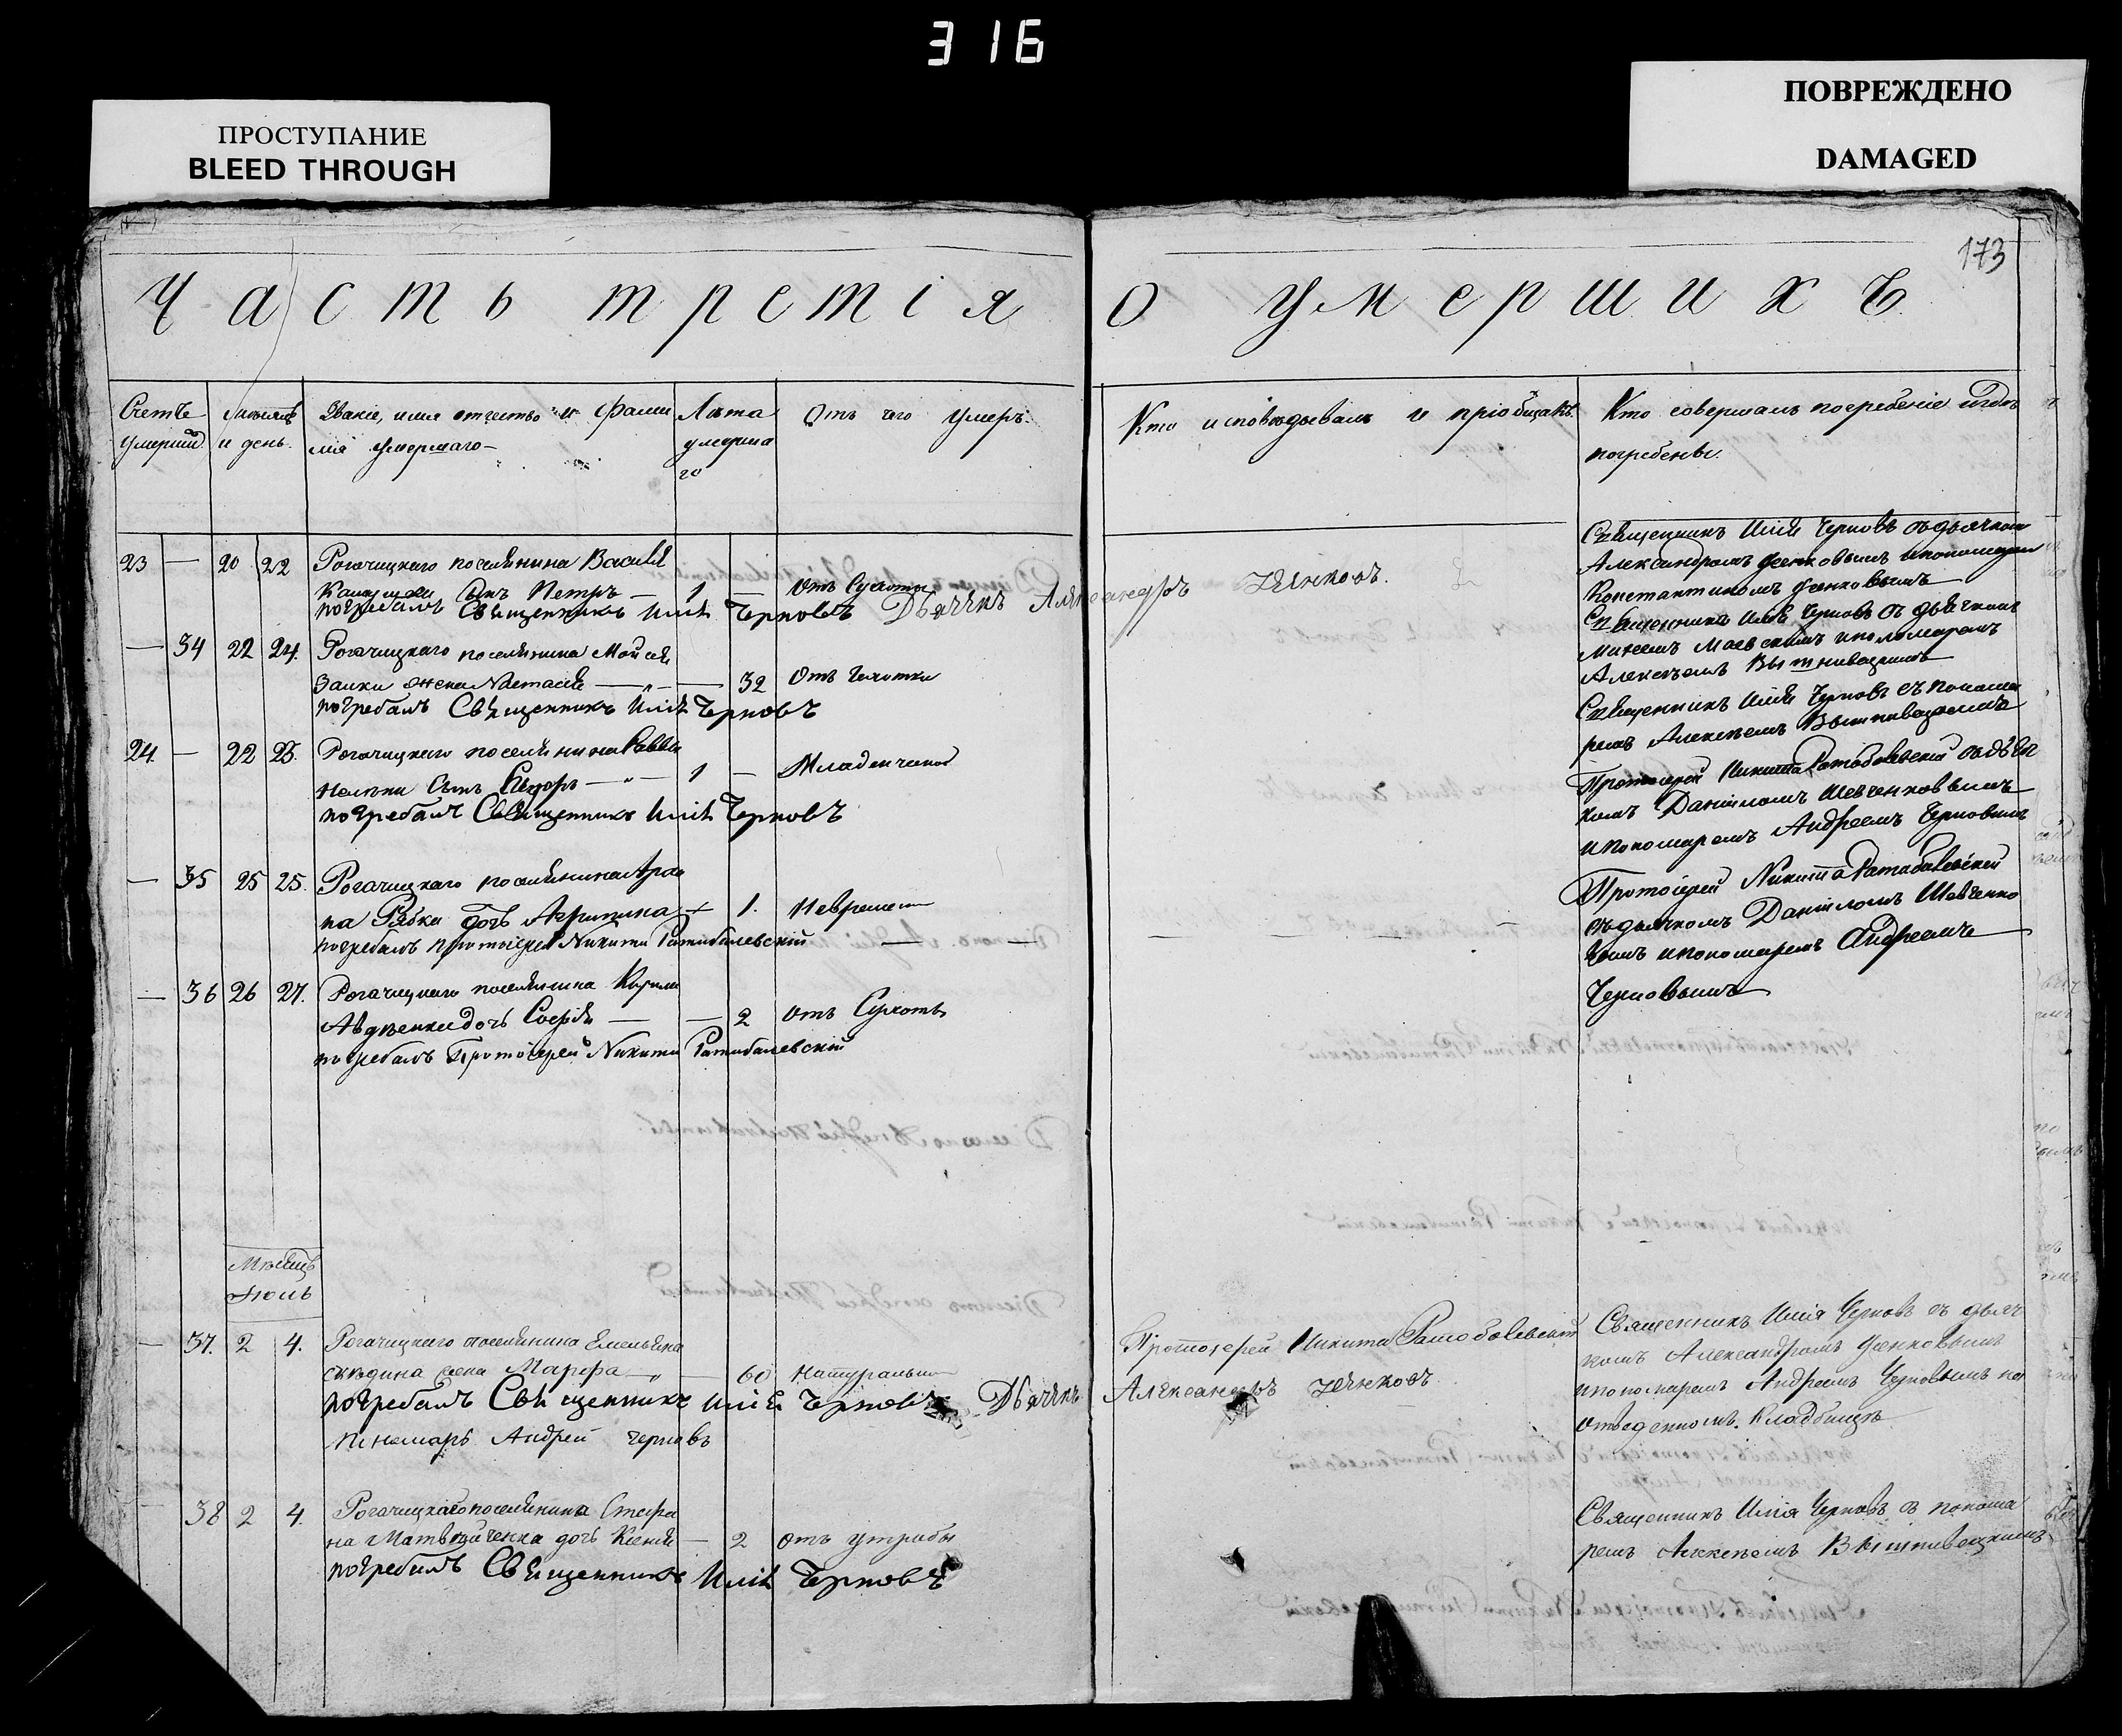 316
ПРОСТУПАНИЕ
BLEED THROUGH
ПОВРЕЖДЕНО
DAMAGED
173
Часть третія о умершихъ
Счетъ умершихъ
Мѣсяцъ и день.
Званіе, имя отчество и фамилія умершаго
Лѣта умершаго
Отъ чего умеръ.
Кто исповѣдывалъ и пріобщалъ.
Кто совершалъ погребеніе и гдѣ погребены.
23 — 20 22 Рогачицкаго поселянина Василія
сынъ Петръ — 1 — отъ Сухоты
погребалъ Священникъ Илія Черновъ Дьячекъ Александръ
Священникъ Илія Черновъ съ дьячкомъ
Александромъ
Константиномъ
— 34 22 24. Рогачицкаго поселянина Мойсея
Заики жена Настасія — 32 Отъ Чахотки
погребалъ Священникъ Илія Черновъ
Священникъ Илія Черновъ съ дьячкомъ
Маевскимъ и пономаремъ
Алексѣемъ
24. — 22 23. Рогачицкаго поселянина Саввы
сынъ — 1 — Младенческой
погребалъ Священникъ Илія Черновъ
Священникъ Илія Черновъ съ понома
ремъ Алексѣемъ
— 35 25 25. Рогачицкаго поселянина
Рябки дочь Агрипина 1.
погребалъ протоіерей Никита Ратибалевскій
Протоіерей Никита Ратобалевскій съ дьяч
комъ Даніиломъ Шевченковымъ
и пономаремъ Андреемъ Черновымъ
— 36 26 27. Рогачицкаго поселянина Кирила
Авдѣенка дочь Софія — — 2 отъ Сухоты
погребалъ Протоіерей Никита Ратибалевскій
Протоіерей Никита Ратабалевскій
съ дьячкомъ Даніиломъ Шевченко
вымъ и пономаремъ Андреемъ
Черновымъ
Мѣсяцъ
Іюль
— 37. 2 4. Рогачицкаго поселянина Емельяна
жена Марфа — 60 натурально
погребалъ Священникъ Илія Черновъ Дьячекъ Александръ
пономарь Андрей Черновъ
Протоіерей Никита Ратобалевскій
Священникъ Илія Черновъ съ дьяч
комъ Александромъ
и пономаремъ Андреемъ Черновымъ на
отведенномъ Кладбищѣ
— 38 2 4. Рогачицкаго поселянина Стефа
на Матвѣйченка дочь Ксенія — 2 отъ утробы
погребалъ Священникъ Илія Черновъ
Священникъ Илія Черновъ съ понома
ремъ Алексѣемъ